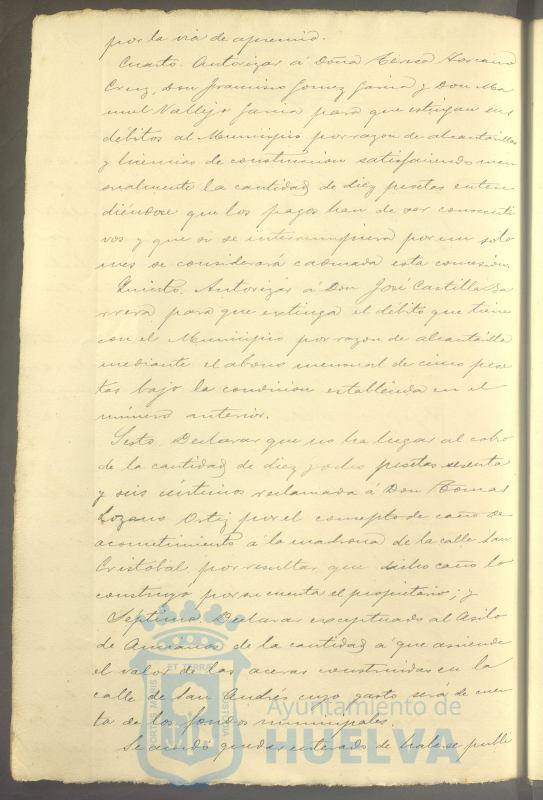 por la via de apremio.
Cuarto. Autorizar á Doña Teresa
Cruz, Don Francisco Gomez Garcia y Don Ma
nuel Vallejo Garcia para que estingan sus
débitos al Municipio por razon de alcantarillas
y licencias de construccion satisfaciendo men
sualmente la cantidad de diez pesetas enten
diéndose que los pagos han de ser consecuti
vos y que si se interrumpiera por un solo
mes se considerará caducada esta concesion.
Quinto. Autorizar á Don José Castilla Ba
rrera para que estinga el débito que tiene
con el Municipio por razon de alcantarilla
mediante el abono mensual de cinco pese
tas bajo la condicion establecida en el
número anterior.
Sesto. Declarar que no ha lugar al cobro
de la cantidad de diez y ocho pesetas sesenta
y seis céntimos reclamada á Don Tomas
Lozano Ortiz por el concepto de caño de
acometimiento á la madrona de la calle San
Cristobal por resultar que dicho caño lo
construyó por su cuenta el propietario; y
Septimo. Declarar exceptuado al Asilo
de Ancianos de la cantidad á que asciende
el valor de las aceras construidas en la
calle de San Andrés cuyo gasto será de cuen
ta de los fondos municipales.
Se acordó quedar enterado de haberse publi
ET TERRÆ
PORTUS MARIS
CUSTODIA
Ayuntamiento de
HUELVA